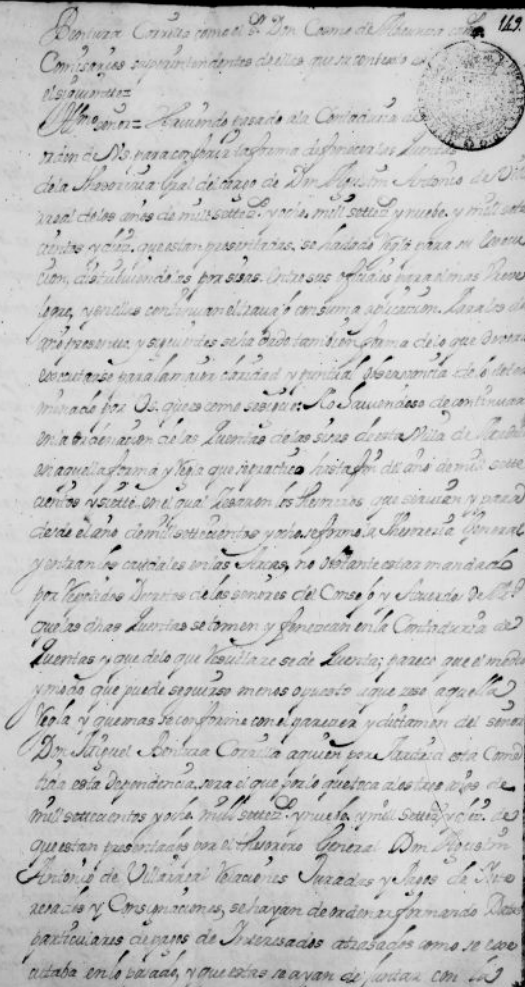 149.
Bentura Correa como el S.r Don Cosme de Abaunza
Comisarios superintendentes de ellas que su contexto es
el siguiente=
Yll.mo señor= Haviendo pasado a la Contaduria de
orden de VS. para la forma de fenecer las Quentas
de la Thesoreria Gral del cargo de Don Agustin Antonio de Villa
rreal de los años de mill settez.s y ocho, mill settez.s y nuebe, y mill sete
cientos y diez, que estan presentadas, se ha dado regla para su
cion, distribuiendolas por sisas entre sus oficiales para el mas breve
y en ellas continuan el travajo con suma aplicacion. Para las del
año presente y siguientes se ha dado tambien forma de lo que devera
executarse para la maior claridad y puntual observancia de lo deter
minado por VS. que es como se sigue: No haviendose de continuar
en la ordenacion de las Quentas de las sisas de esta Villa de Madrid
en aquella forma y regla que se practico hasta fin del año de mill sette
cientos y siette, en el qual cesaron los Thesoreros que servian y para
desde el año de mill settecientos y ocho se formo la Thesoreria General
y entran los caudales en las Arcas, no obstante estar mandado
por repetidos Decretos de los señores del Consejo y Acuerdos de Md
que las dhas Quentas se tomen y fenezcan en la Contaduria de
Quentas y que de lo que resultare se de Quenta; parece que el medio
y modo que puede seguirse menos opuesto a que zeso aquella
regla y que mas se conforme con el parecer y dictamen del señor
Don Miguel Bentura Correa a quien por Madrid esta Come
tida esta Dependencia, sera el que por lo que toca a los tres años de
mill settecientos y ocho, mill settez.s y nuebe, y mill settez.s y diez, de
que estan presentados por el Thesorero General Don Agustin
Antonio de Villarreal Relaciones Juradas y Pagos de Inte
resados y Consignaciones, se hayan de ordenar formando Datas
particulares de pagos de Interesados atrasados como se exe
cutaba en lo pasado, y que estas se ayan de juntar con las